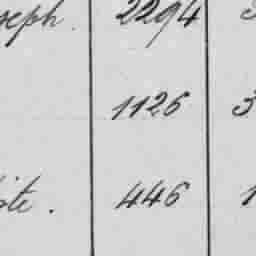 seph. 2294
1126 3
ite. 446 1